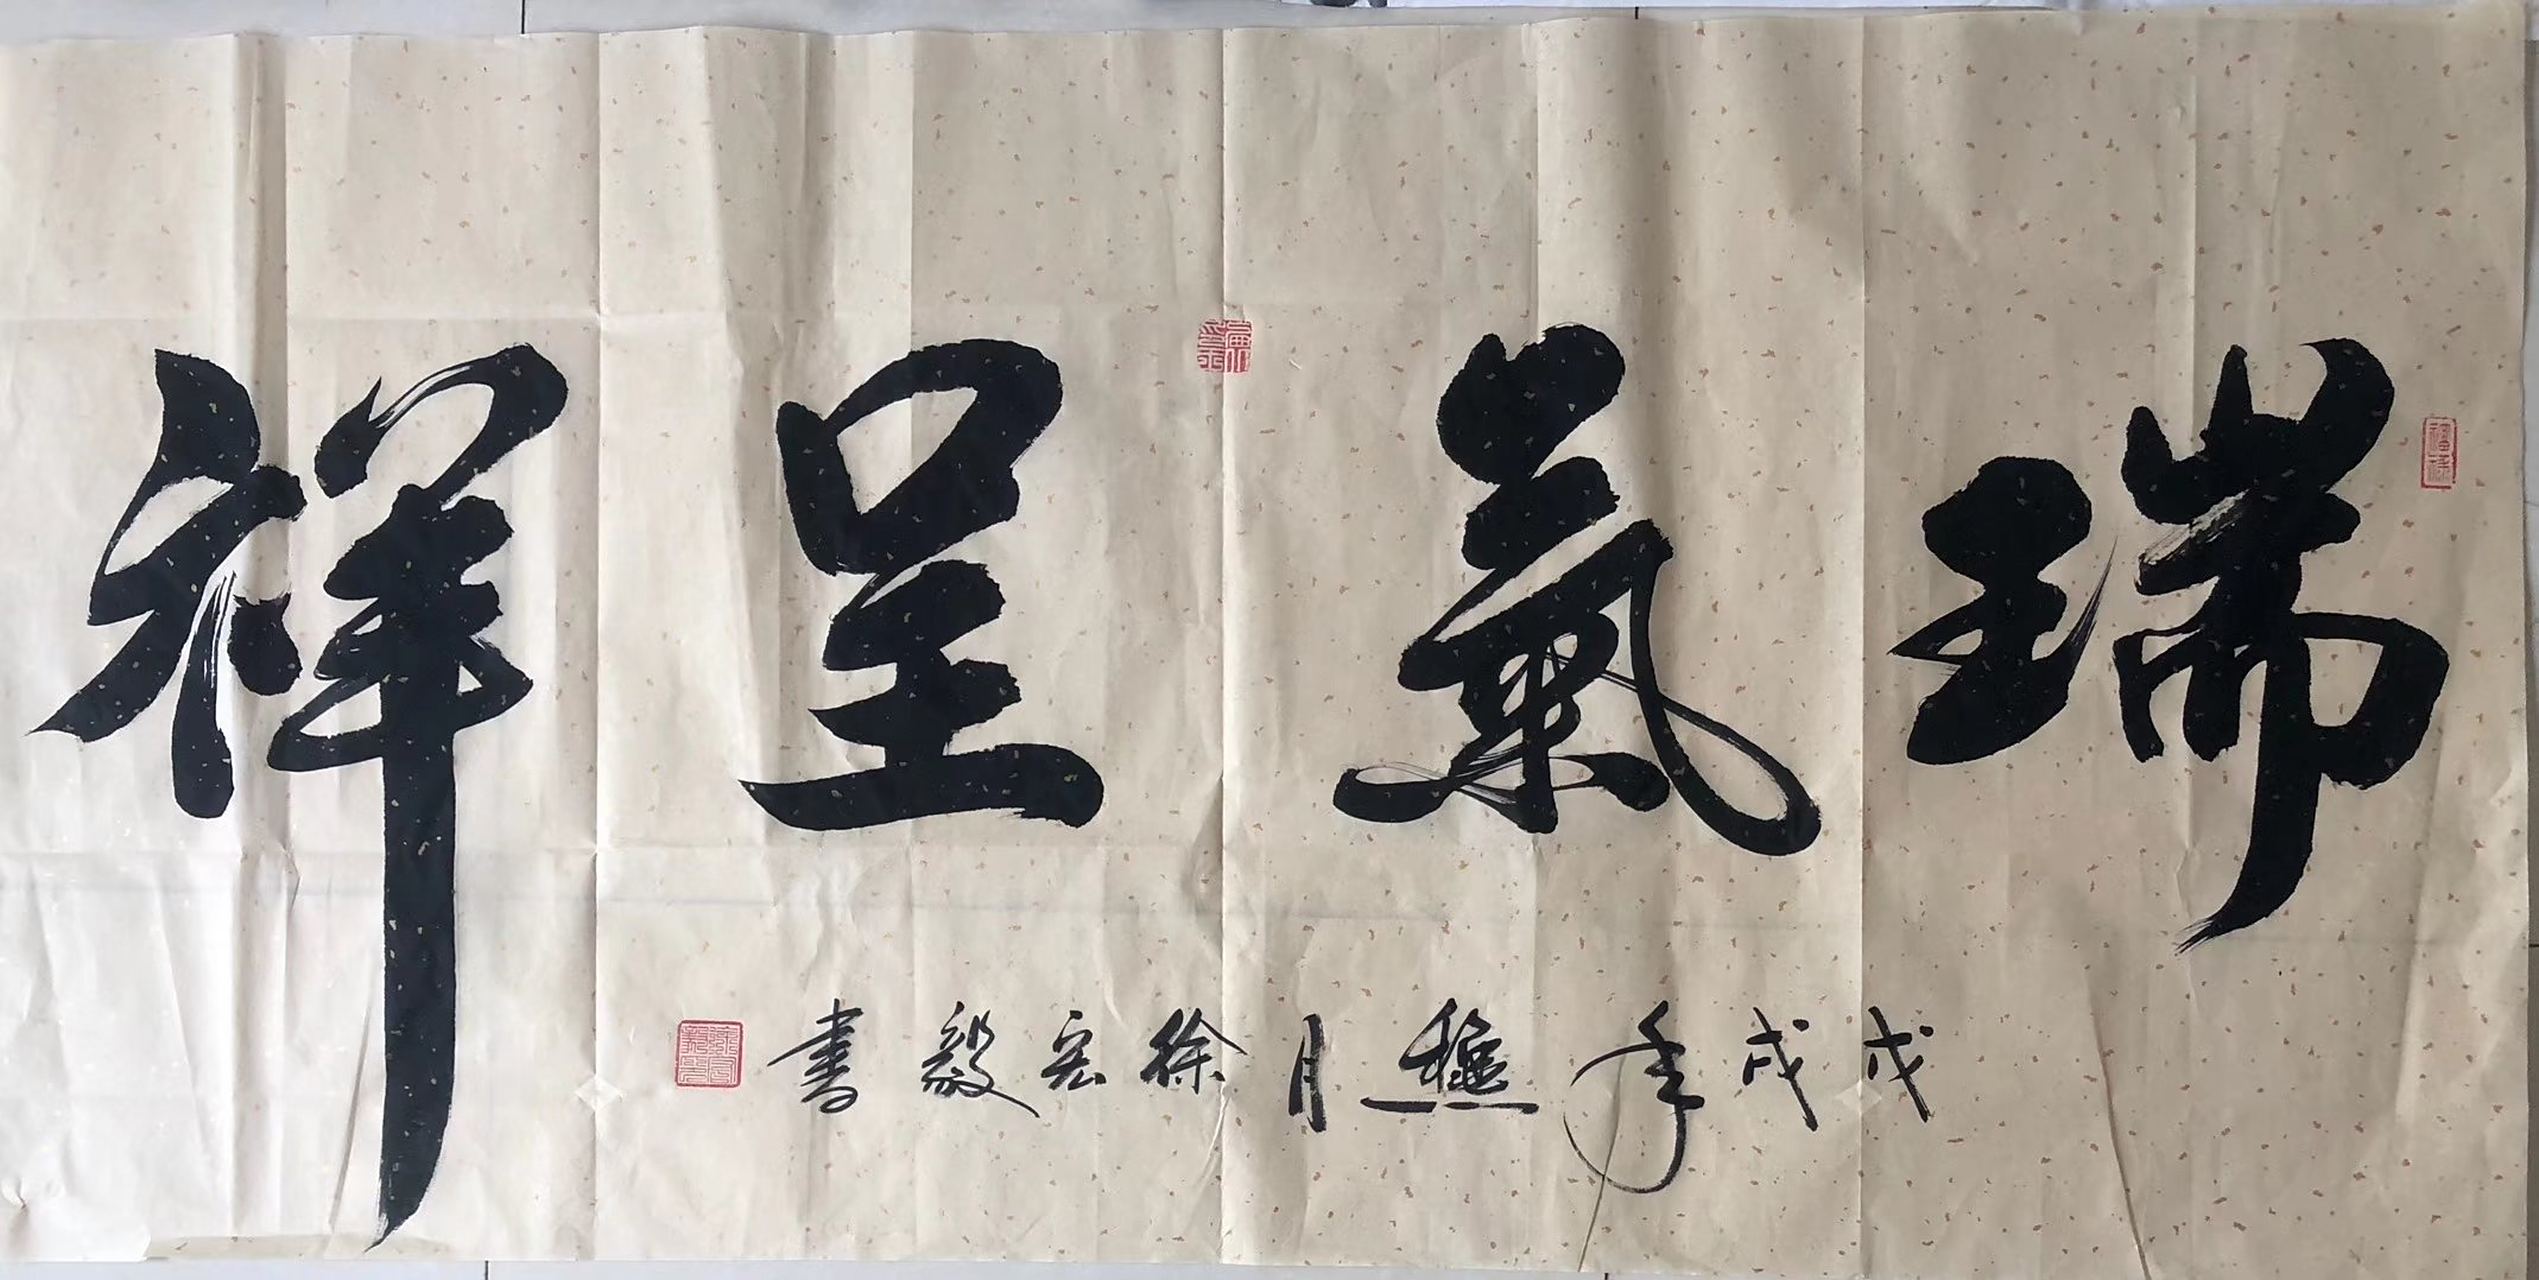 瑞氣呈祥
戊戌年 月徐宏毅書